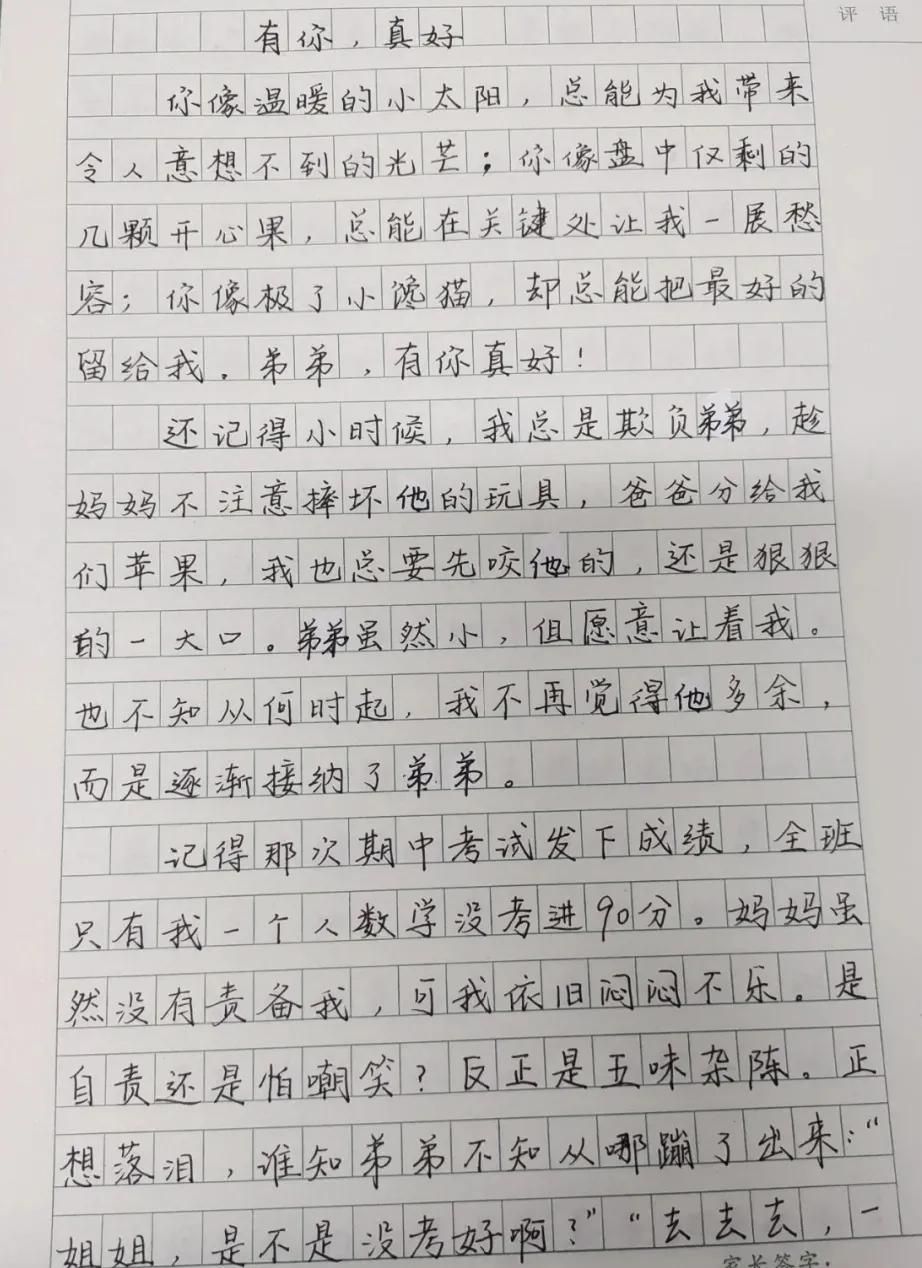 评 语
有你，真好
你像温暖的小太阳，总能为我带来
令人意想不到的光芒；你像盘中仅剩的
几颗开心果，总能在关键处让我一展愁
容；你像极了小馋猫，却总能把最好的
留给我。弟弟，有你真好！
还记得小时候，我总是欺负弟弟，趁
妈妈不注意摔坏他的玩具，爸爸分给我
们苹果，我也总要先咬他的，还是狠狠
的一大口。弟弟虽然小，但愿意让着我。
也不知从何时起，我不再觉得他多余，
而是逐渐接纳了弟弟。
记得那次期中考试发下成绩，全班
只有我一个人数学没考进90分。妈妈虽
然没有责备我，可我依旧闷闷不乐。是
自责还是怕嘲笑？反正是五味杂陈。正
想落泪，谁知弟弟不知从哪蹦了出来：“
姐姐，是不是没考好啊？”“去去去，一
家长签字：